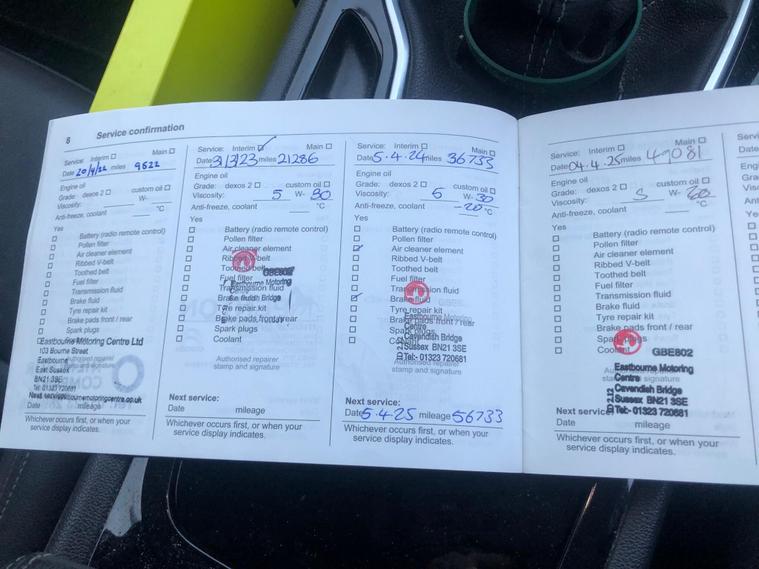 6 Service confirmation
Service: Interim ☐ Main ☐
Date 20/4/22 miles 9622
Engine oil
Grade: dexos 2 ☐ custom oil ☐
Viscosity: W-
Anti-freeze, coolant °C
Yes
☐ Battery (radio remote control)
☐ Pollen filter
☐ Air cleaner element
☐ Ribbed V-belt
☐ Toothed belt
☐ Fuel filter
☐ Transmission fluid
☐ Brake fluid
☐ Tyre repair kit
☐ Brake pads front / rear
☐ Spark plugs
Eastbourne Motoring Centre Ltd
103 Bourne Street
Eastbourne
East Sussex
BN21 3SE
Tel: 01323 720681
eastbournemotoringcentre.co.uk
Next service:
Date mileage
Whichever occurs first, or when your
service display indicates.
Service: Interim ☑ Main ☐
Date 31/3/23 miles 21286
Engine oil
Grade: dexos 2 ☐ custom oil ☐
Viscosity: 5 W- 30
Anti-freeze, coolant °C
Yes
☐ Battery (radio remote control)
☐ Pollen filter
☐ Air cleaner element
☐ Ribbed V-belt
☐ Toothed belt
☐ Fuel filter
☐ Transmission fluid
☐ Brake fluid
☐ Tyre repair kit
☐ Brake pads front / rear
☐ Spark plugs
☐ Coolant
GBE802
Eastbourne Motoring
Cavendish Bridge
Authorised repairer
stamp and signature
Next service:
Date mileage
Whichever occurs first, or when your
service display indicates.
Service: Interim ☐ Main ☐
Date 5.4.24 miles 36733
Engine oil
Grade: dexos 2 ☐ custom oil ☐
Viscosity: 5 W- 30
Anti-freeze, coolant -20 °C
Yes
☐ Battery (radio remote control)
☐ Pollen filter
☑ Air cleaner element
☐ Ribbed V-belt
☐ Toothed belt
☐ Fuel filter
☐ Transmission fluid
☑ Brake fluid
☐ Tyre repair kit
☐ Brake pads front / rear
☐ Spark plugs
☐ Coolant
Eastbourne Motoring
Centre
Cavendish Bridge
Sussex BN21 3SE
Tel:- 01323 720681
Authorised repairer
stamp and signature
Next service:
Date 5.4.25 mileage 56733
Whichever occurs first, or when your
service display indicates.
Service: Interim ☐ Main ☐
Date 04.4.25 miles 49081
Engine oil
Grade: dexos 2 ☐ custom oil ☐
Viscosity: 5 W-
Anti-freeze, coolant °C
Yes
☐ Battery (radio remote control)
☐ Pollen filter
☐ Air cleaner element
☐ Ribbed V-belt
☐ Toothed belt
☐ Fuel filter
☐ Transmission fluid
☐ Brake fluid
☐ Tyre repair kit
☐ Brake pads front / rear
☐ Spark plugs
☐ Coolant
GBE802
Eastbourne Motoring
Centre
Cavendish Bridge
Sussex BN21 3SE
Tel:- 01323 720681
Next service:
Date mileage
Whichever occurs first, or when your
service display indicates.